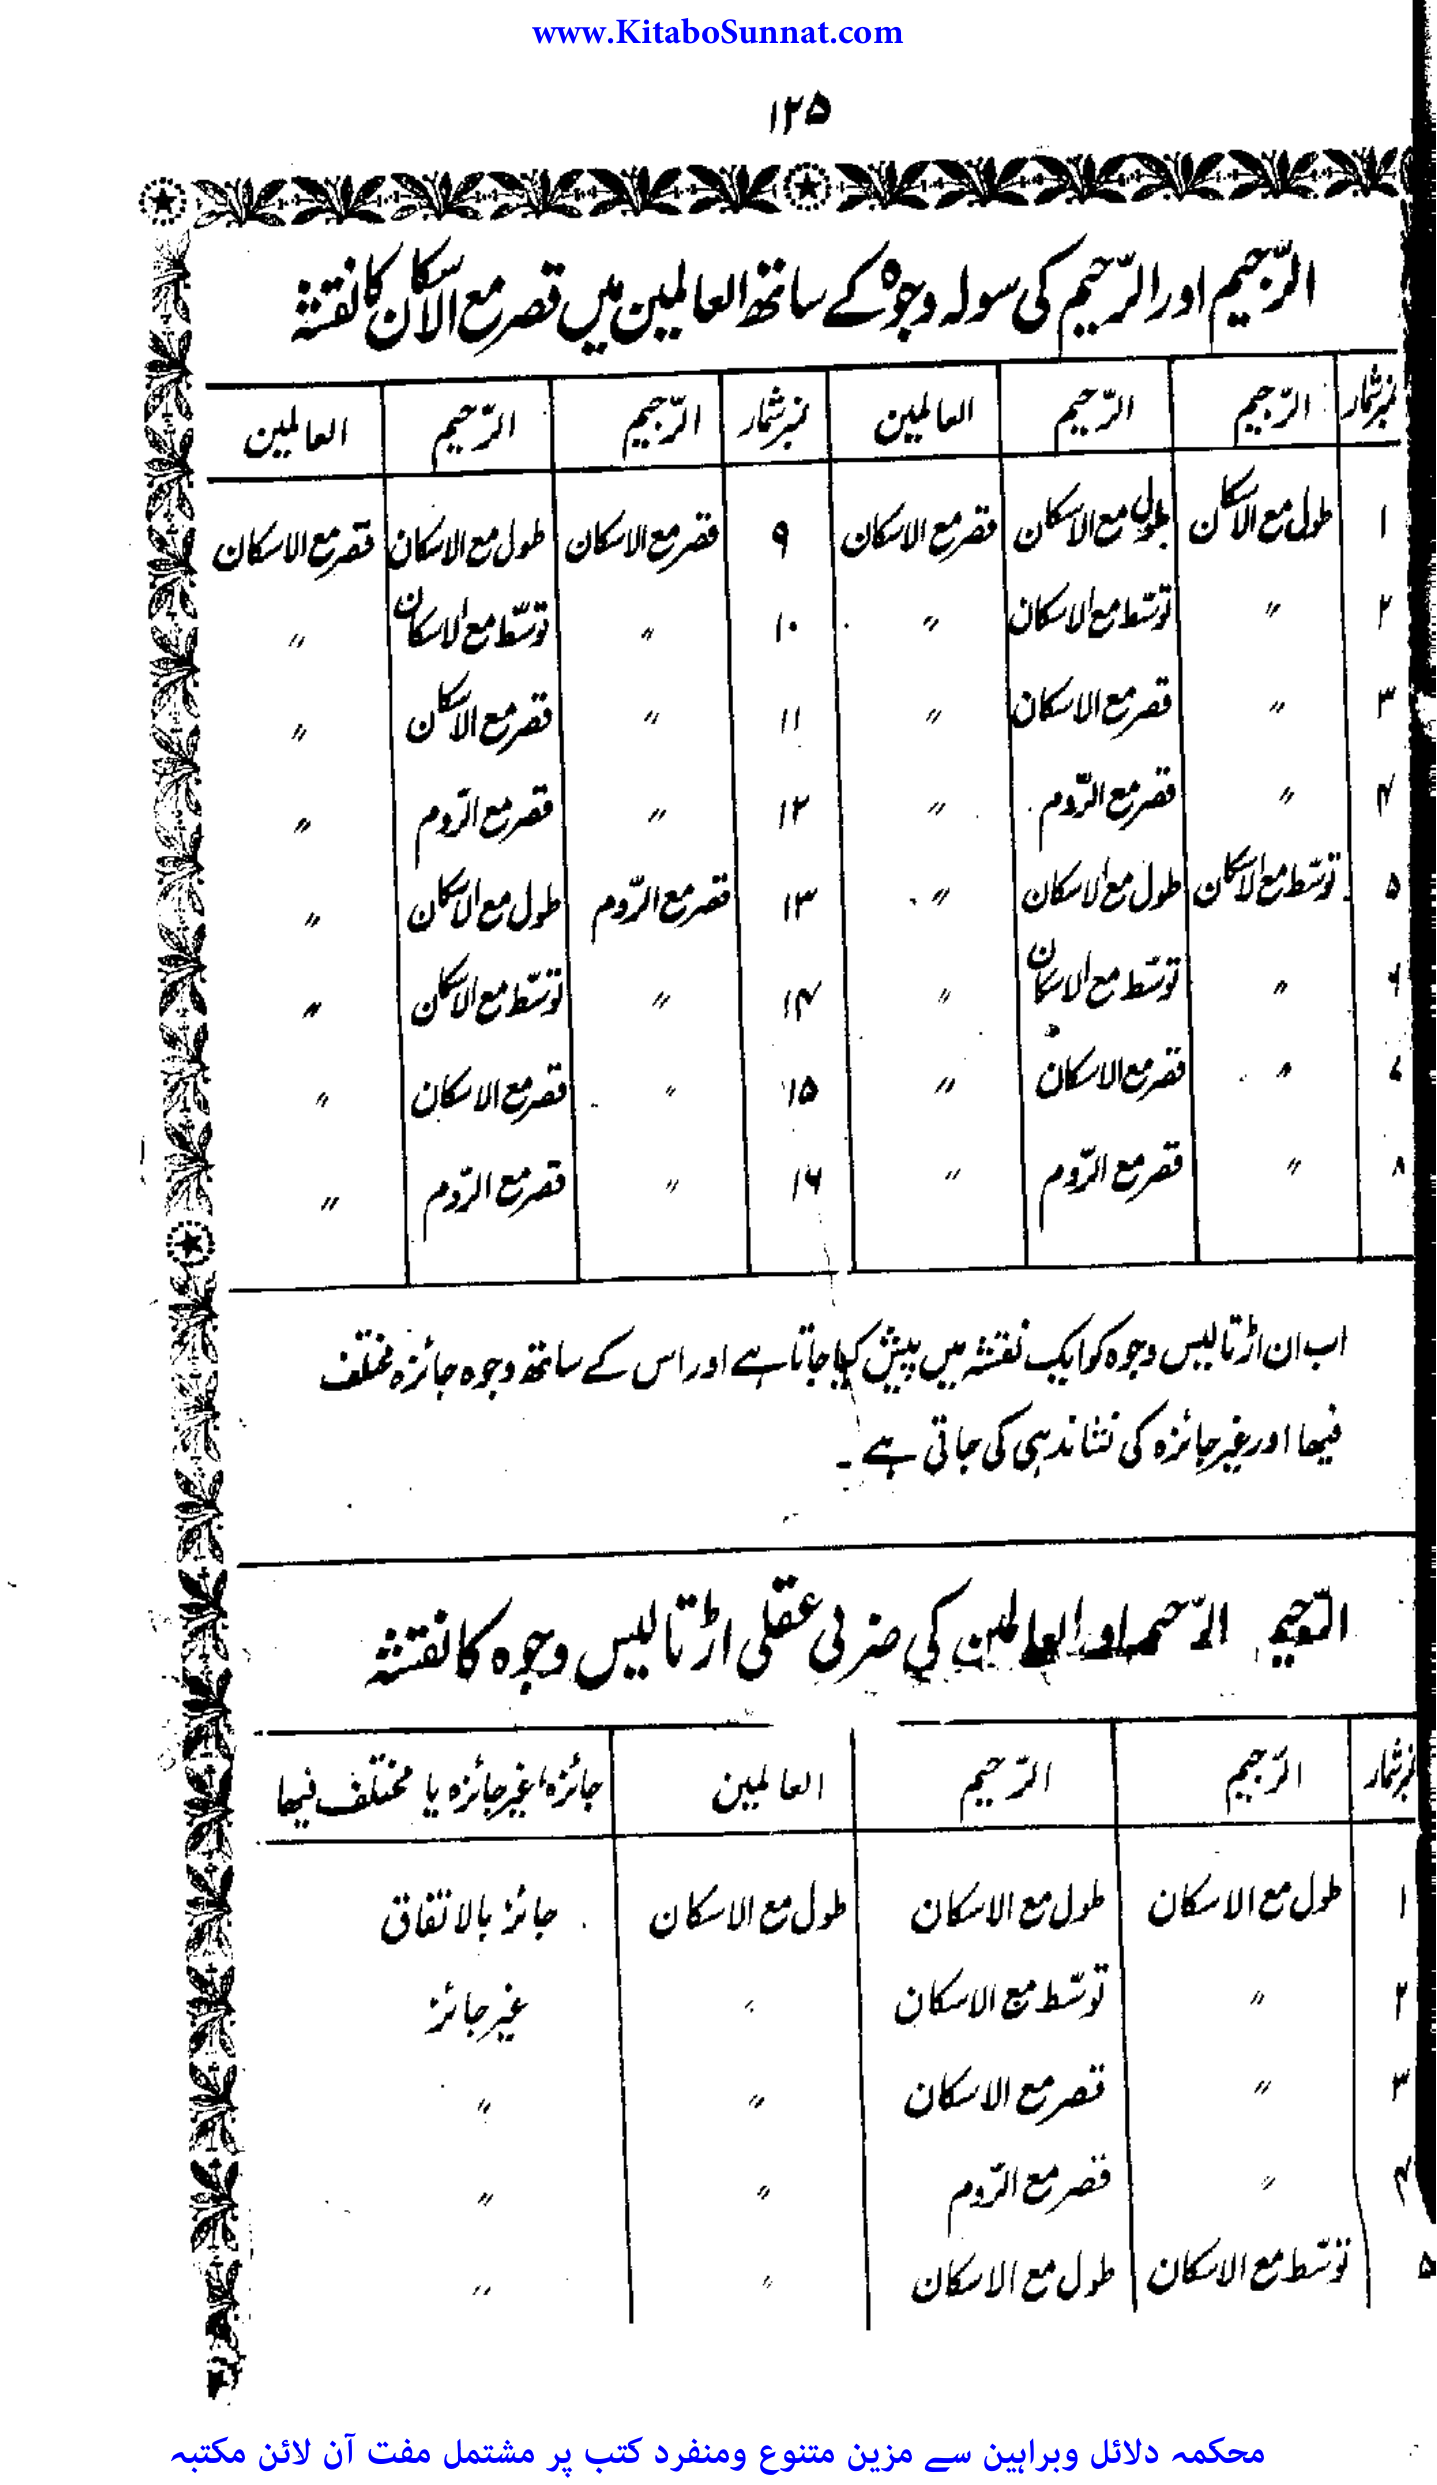 www.KitaboSunnat.com
۱۲۵
الرّجیم اور الرّحیم کی سولہ وجوہ کے ساتھ العالمین میں قصر مع الاسکان کا نقشہ
نمبر شمار الرّجیم الرّحیم العالمین نمبر شمار الرّجیم الرّحیم العالمین
۱ طول مع الاسکان طول مع الاسکان قصر مع الاسکان ۹ قصر مع الاسکان طول مع الاسکان قصر مع الاسکان
۲ 〃 توسّط مع الاسکان 〃 ۱۰ 〃 توسّط مع الاسکان 〃
۳ 〃 قصر مع الاسکان 〃 ۱۱ 〃 قصر مع الاسکان 〃
۴ 〃 قصر مع الرّوم 〃 ۱۲ 〃 قصر مع الرّوم 〃
۵ توسّط مع الاسکان طول مع الاسکان 〃 ۱۳ قصر مع الرّوم طول مع الاسکان 〃
۶ 〃 توسّط مع الاسکان 〃 ۱۴ 〃 توسّط مع الاسکان 〃
۷ 〃 قصر مع الاسکان 〃 ۱۵ 〃 قصر مع الاسکان 〃
۸ 〃 قصر مع الرّوم 〃 ۱۶ 〃 قصر مع الرّوم 〃
اب ان اڑتالیس وجوہ کو ایک نقشہ میں پیش کیا جاتا ہے اور اس کے ساتھ وجوہ جائزہ مختلف
فیھا اور غیر جائزہ کی نشاندہی کی جاتی ہے ۔
الرّجیم الرّحیم اور العالمین کی ضربی عقلی اڑتالیس وجوہ کا نقشہ
نمبر شمار الرّجیم الرّحیم العالمین جائزہ، غیر جائزہ یا مختلف فیھا
۱ طول مع الاسکان طول مع الاسکان طول مع الاسکان جائز بالاتفاق
۲ 〃 توسّط مع الاسکان 〃 غیر جائز
۳ 〃 قصر مع الاسکان 〃 〃
۴ 〃 قصر مع الرّوم 〃 〃
۵ توسّط مع الاسکان طول مع الاسکان 〃 〃
محکمہ دلائل وبراہین سے مزین متنوع ومنفرد کتب پر مشتمل مفت آن لائن مکتبہ